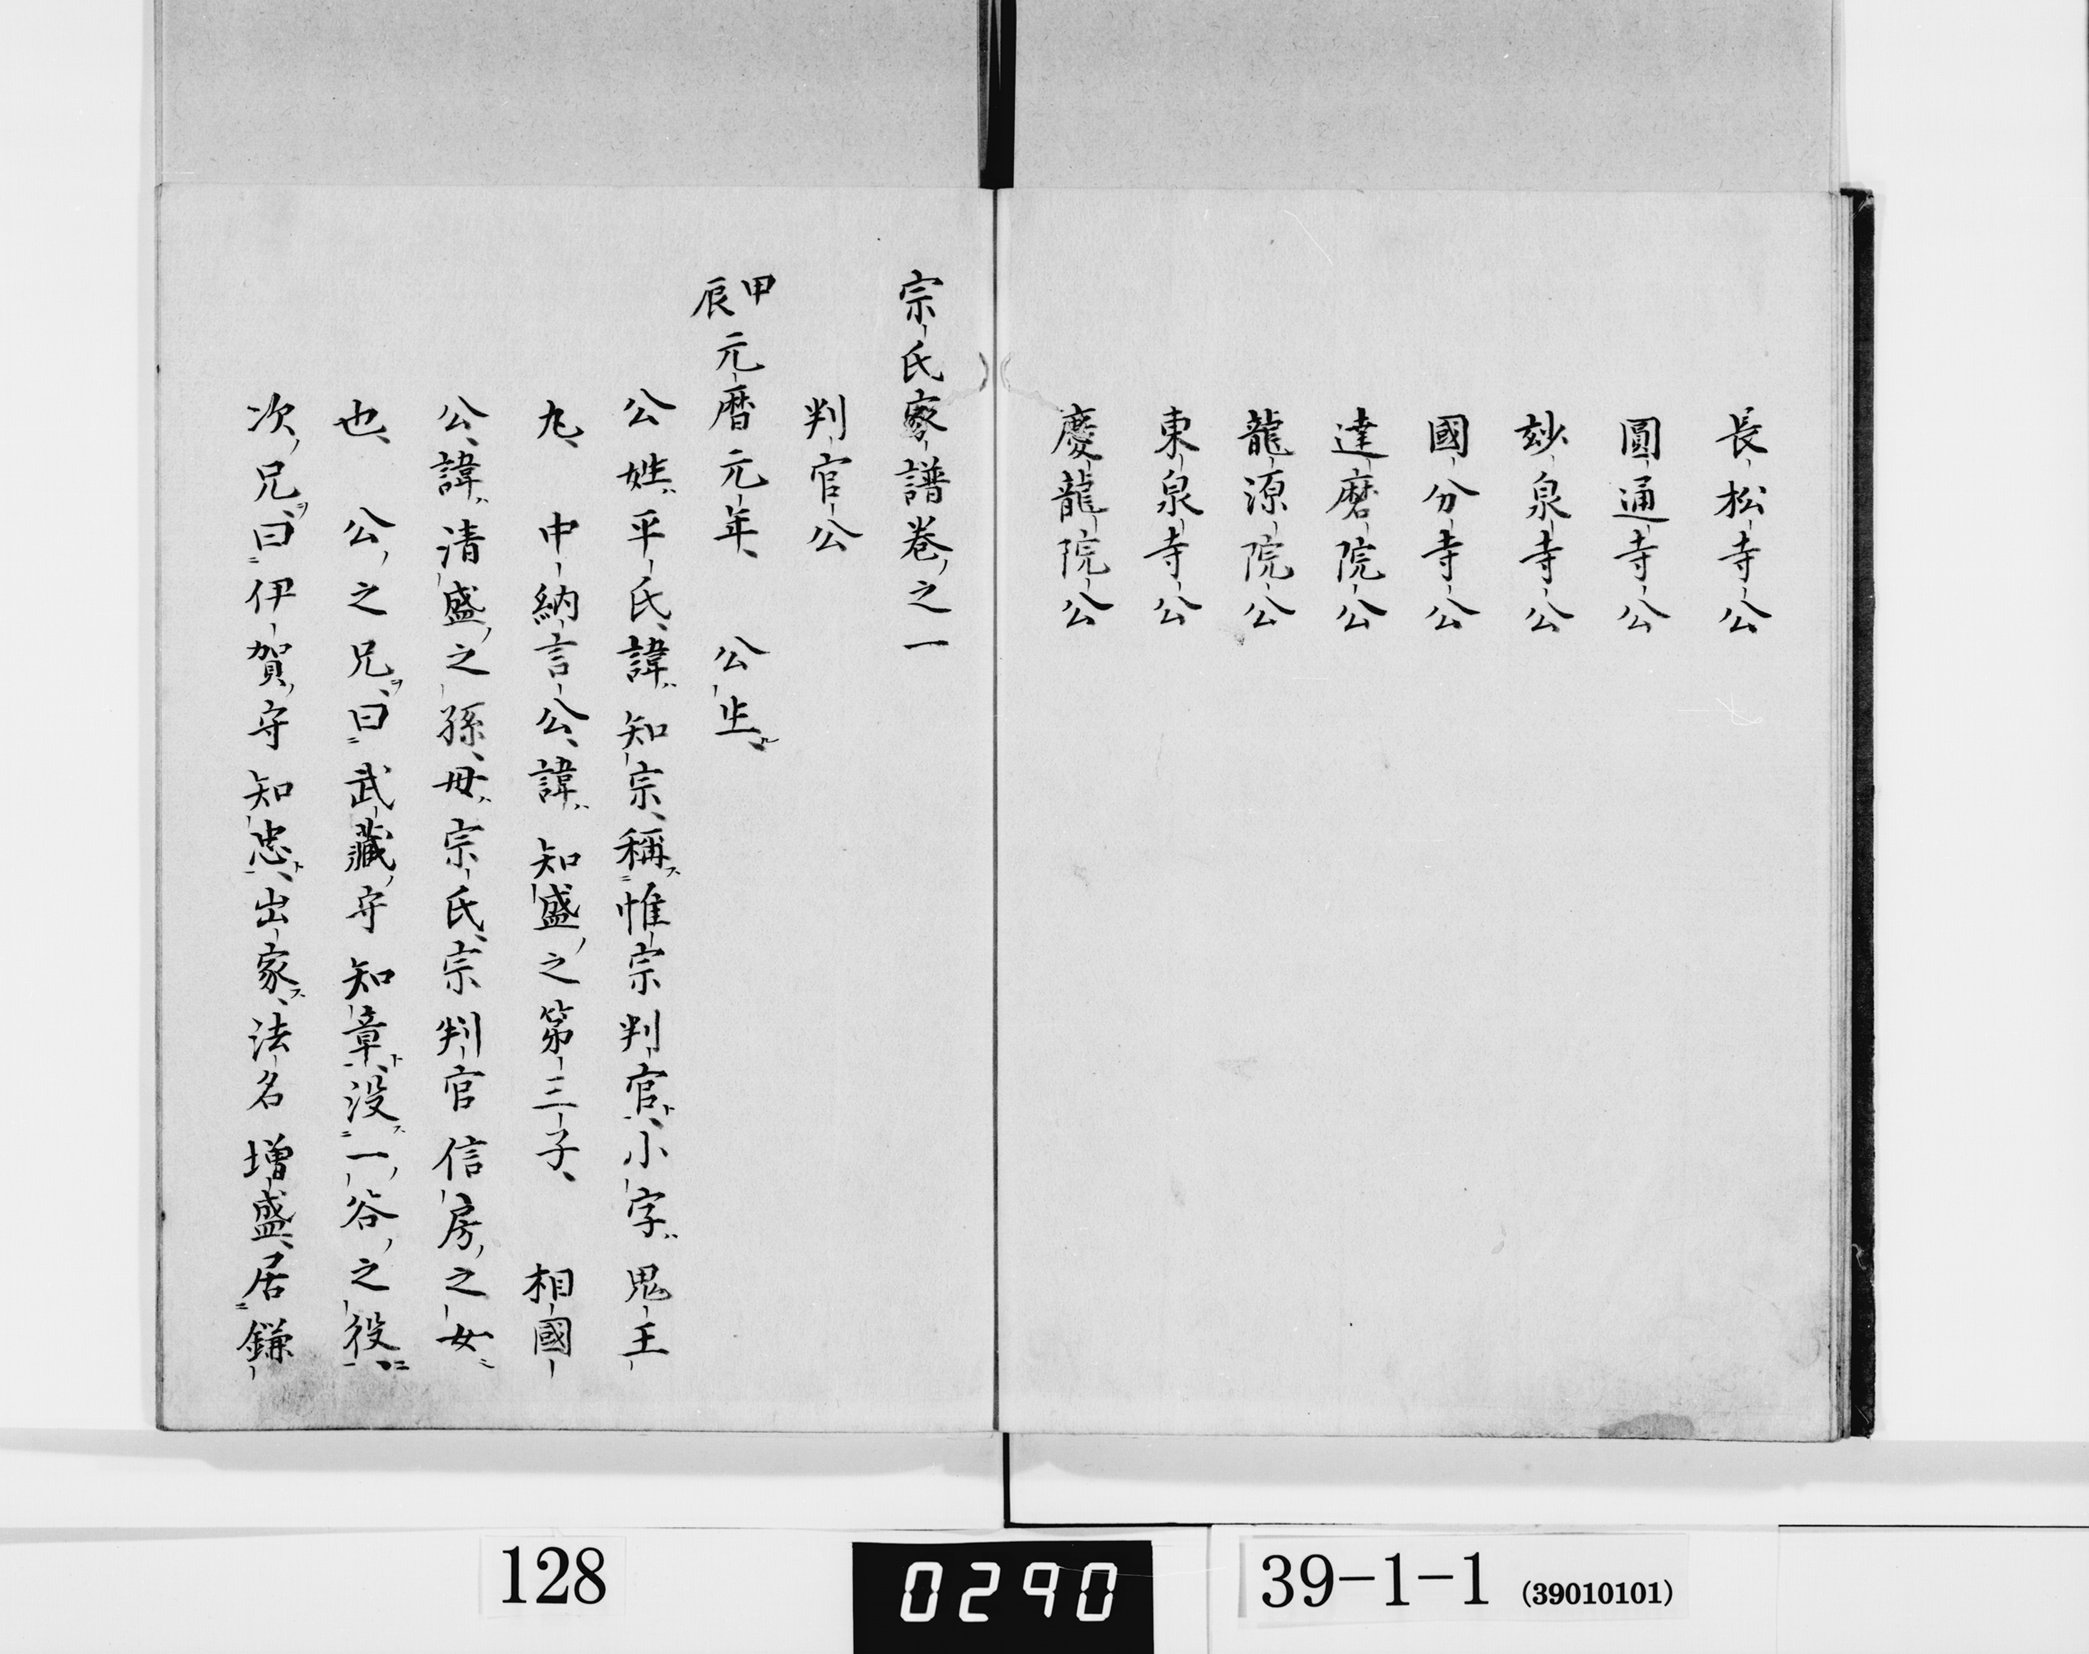 長松寺公
圓通寺公
玅泉寺公
國分寺公
達磨院公
龍源院公
東泉寺公
慶龍院公
宗氏家譜巻之一
判官公
甲辰元暦元年　公生ル
公姓ハ平氏諱ハ知宗称ス惟宗判官ト小字ハ鬼王
丸　中納言公諱ハ知盛之第三子　相國
公諱ハ清盛之孫母ハ宗氏宗判官信房之女ニ
也　公之兄ヲ曰武藏守知章ト没ス一谷之役ニ
次兄ヲ曰伊賀守知忠ト出家ス法名増盛居鎌
128
0290
39-1-1 (39010101)